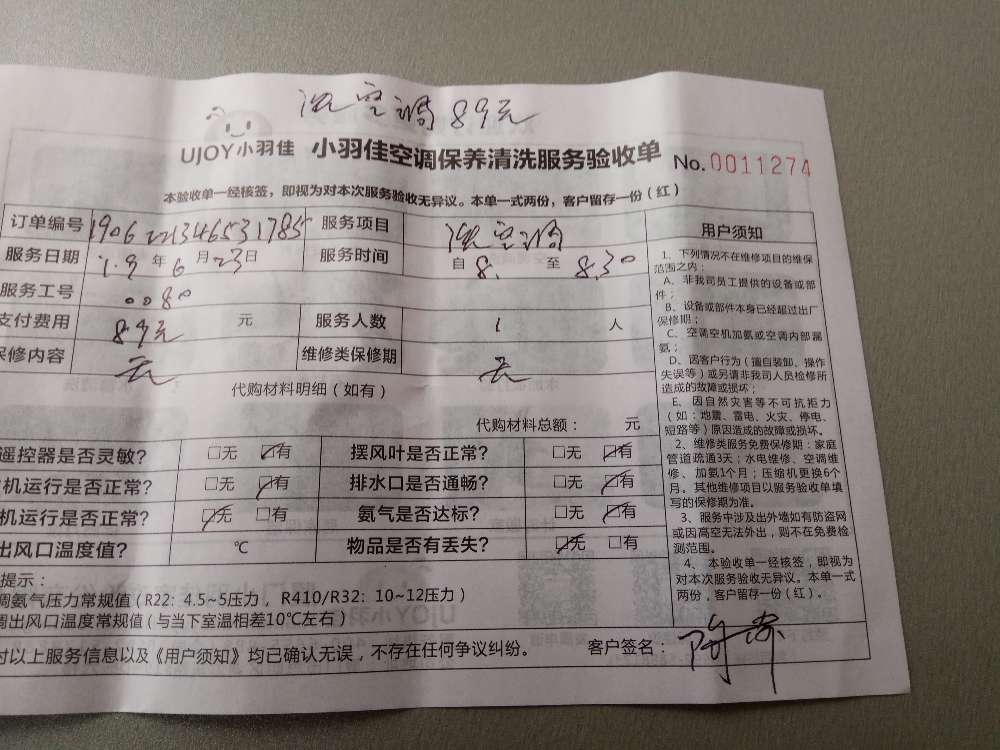 洗空调89元
UJOY小羽佳 小羽佳空调保养清洗服务验收单 No.0011274
本验收单一经核签，即视为对本次服务验收无异议。本单一式两份，客户留存一份（红）
订单编号 1906221346531785 服务项目 洗空调
服务日期 19年6月23日 服务时间 自8. 至 8.30
服务工号 0080
支付费用 89元 元 服务人数 1 人
保修内容 无 维修类保修期 无
代购材料明细（如有）
代购材料总额： 元
遥控器是否灵敏? □无 □有 摆风叶是否正常? □无 □有
机运行是否正常? □无 □有 排水口是否通畅? □无 □有
机运行是否正常? □无 □有 氨气是否达标? □无 □有
出风口温度值? ℃ 物品是否有丢失? □无 □有
提示：
调氨气压力常规值（R22: 4.5~5压力， R410/R32: 10~12压力）
调出风口温度常规值（与当下室温相差10℃左右）
对以上服务信息以及《用户须知》均已确认无误，不存在任何争议纠纷。 客户签名：
用户须知
1、下列情况不在维修项目的维保
范围之内：
A、非我司员工提供的设备或部
件；
B、设备或部件本身已经超过出厂
保修期；
C、空调空机加氨或空调内部漏
氨；
D、因客户行为（擅自装卸、操作
失误等）或另请非我司人员检修所
造成的故障或损坏；
E、因自然灾害等不可抗拒力
（如：地震、雷电、火灾、停电、
短路等）原因造成的故障或损坏。
2、维修类服务免费保修期：家庭
管道疏通3天；水电维修、空调维
修、加氨1个月；压缩机更换6个
月。其他维修项目以服务验收单填
写的保修期为准。
3、服务中涉及出外墙如有防盗网
或因高空无法外出，则不在免费检
测范围。
4、本验收单一经核签，即视为
对本次服务验收无异议。本单一式
两份，客户留存一份（红）。